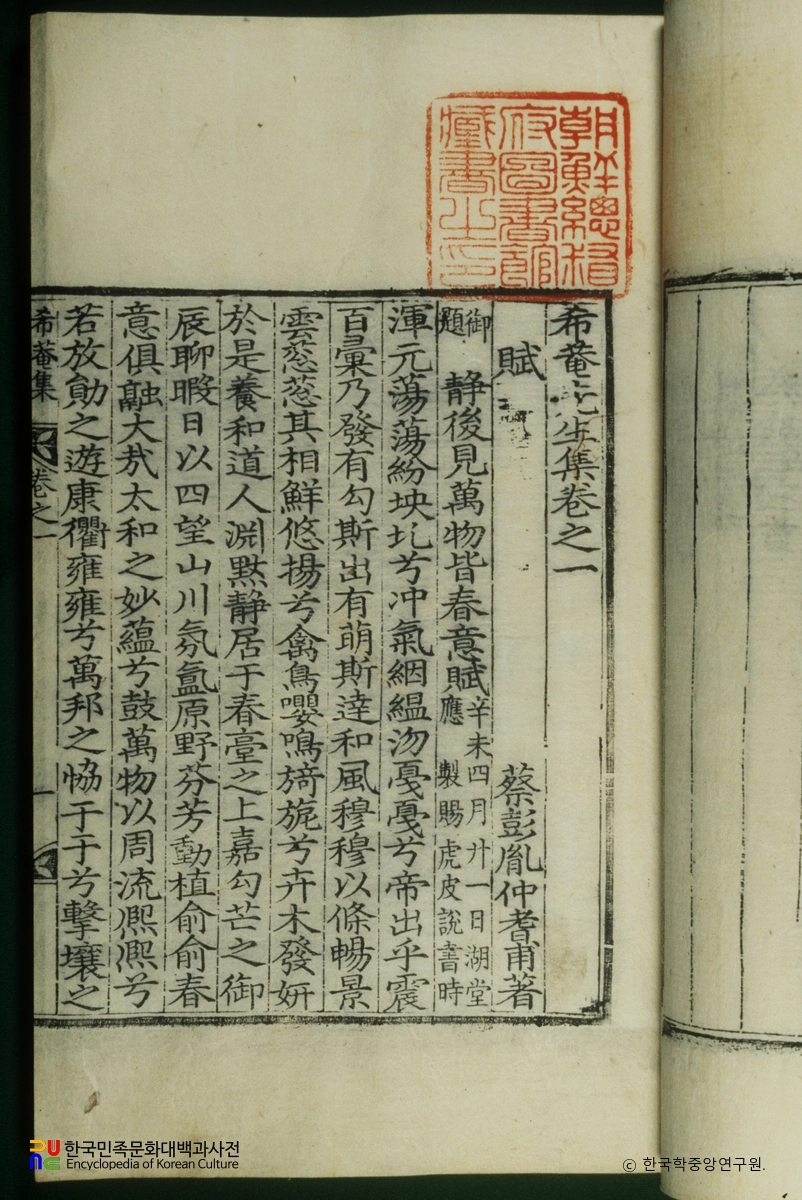 朝鮮總督
府圖書館
藏書之印
希菴先生集卷之一
賦 蔡彭胤仲耆甫著
御題 靜後見萬物皆春意賦 辛未四月廿一日湖堂應 製賜虎皮說書時
渾元蕩蕩紛坱圠兮冲氣絪縕沕戞戞兮帝出乎震
百彙乃發有勾斯出有萌斯達和風穆穆以條暢景
雲葱葱其相鮮悠揚兮禽鳥嚶鳴旖旎兮卉木發姸
於是養和道人淵默靜居于春臺之上嘉勾芒之御
辰聊暇日以四望山川氛氳原野芬芳動植俞俞春
意俱融大㢤太和之妙蘊兮鼓萬物以周流凞凞兮
若放勛之遊康衢雍雍兮萬邦之恊于于兮擊壤之
希菴集 卷之一 一
한국민족문화대백과사전
Encyclopedia of Korean Culture
© 한국학중앙연구원.